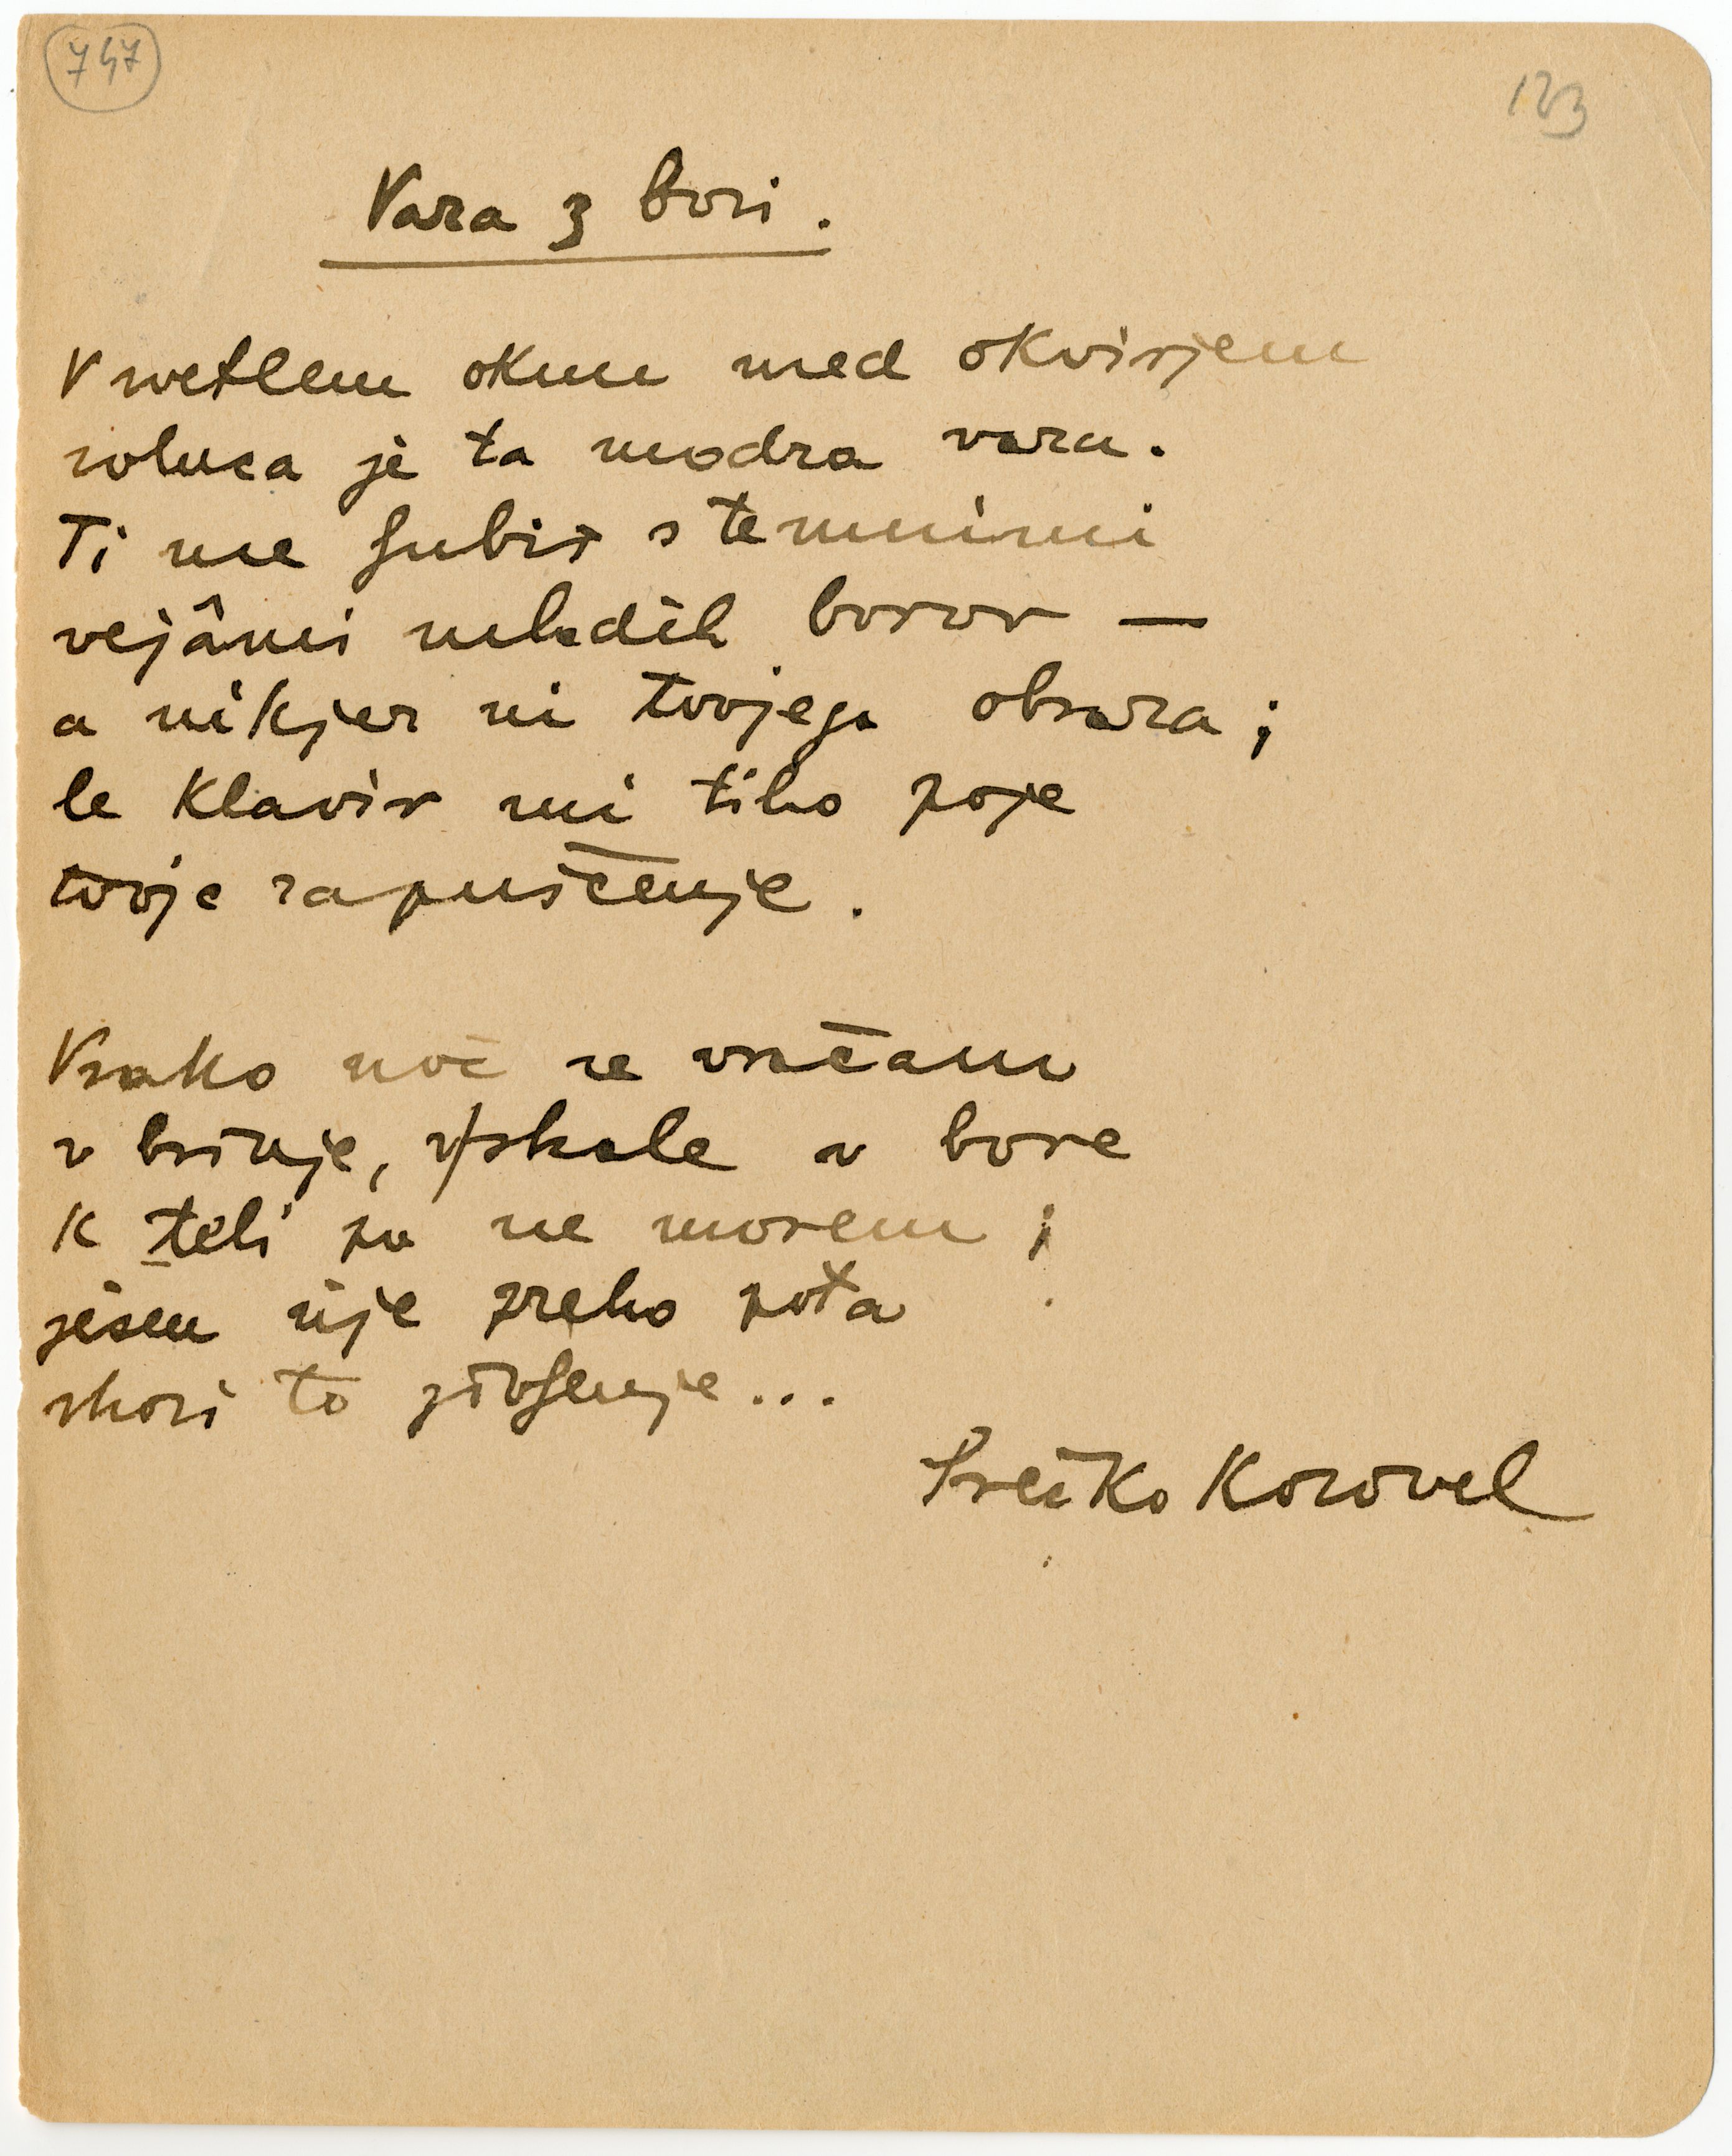 747
123
Vaza z bori.
V svetlem oknu med okvirjem
solnca je ta modra vaza.
Ti me ljubiš s temnimi
vejâmi mladih borov —
a nikjer ni tvojega obraza;
le klavir mi tiho poje
tvoje zapuščenje.
Vsako noč se vračam
v brinje, v skale v bore
k tebi pa ne morem;
jesen šije preko pota
skozi to življenje...
Srečko Kosovel